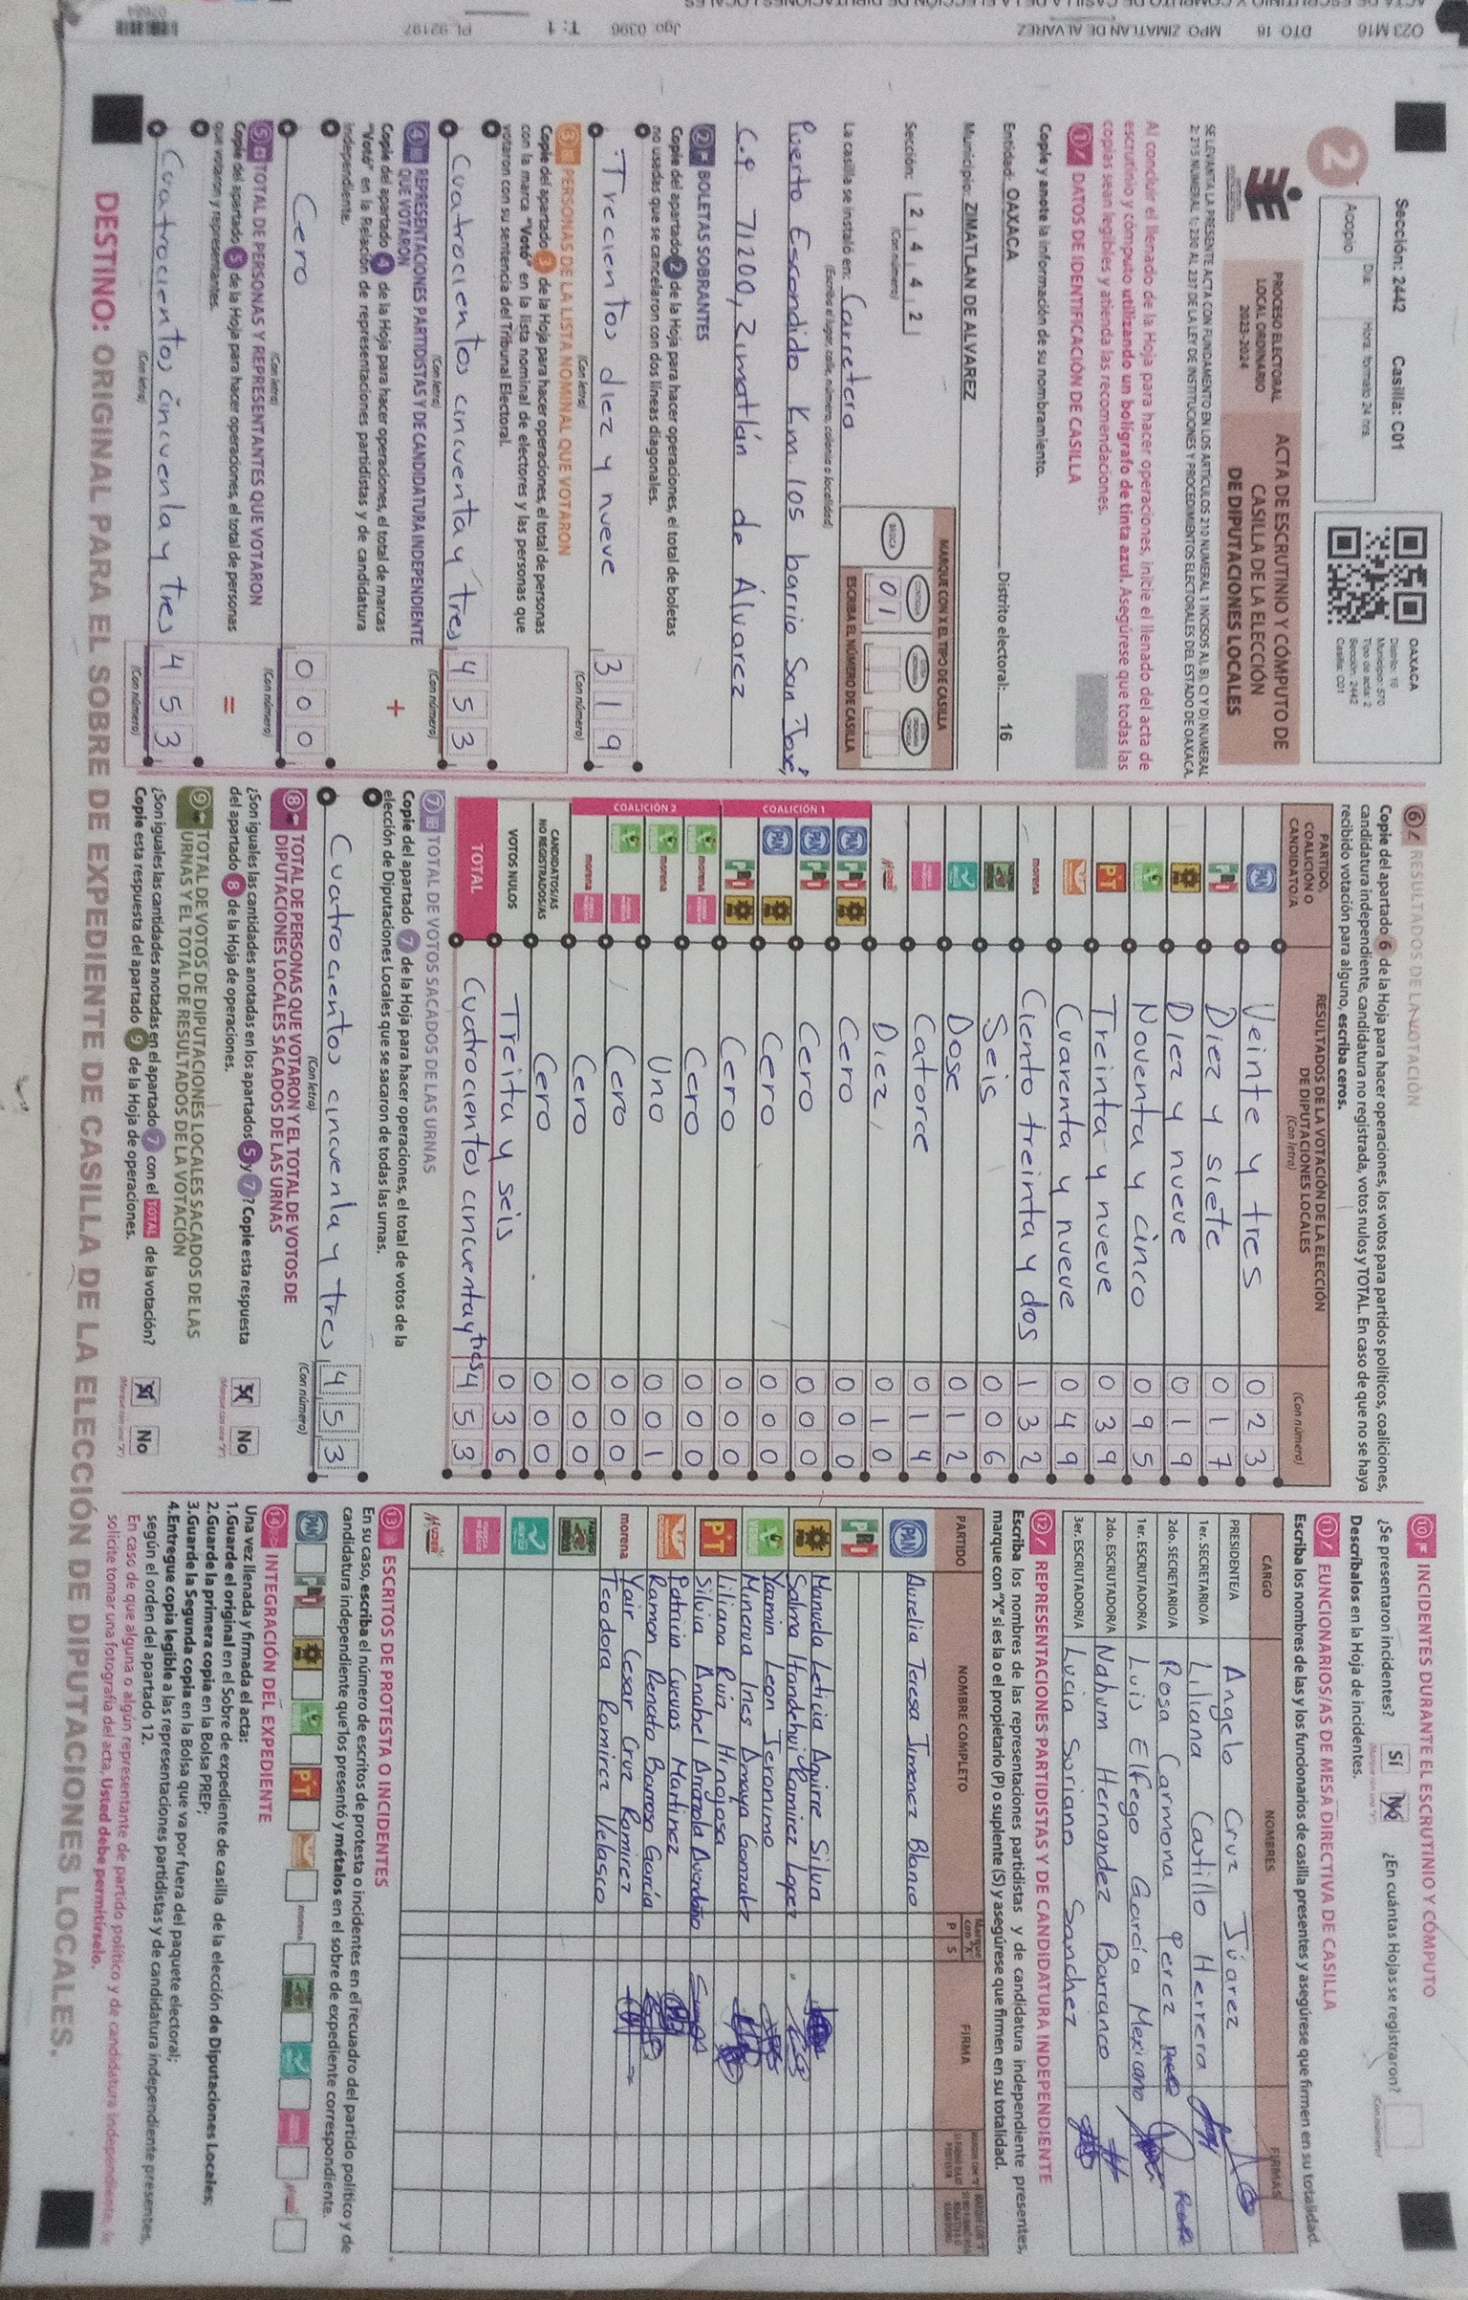 Sección: 2442 Casilla: C01
Acopio
Día:
Hora, formato 24 hrs.
OAXACA
Distrito: 16
Municipio: 570
Tipo de acta: 2
Sección: 2442
Casilla: C01
2
PROCESO ELECTORAL
LOCAL ORDINARIO
2023-2024
ACTA DE ESCRUTINIO Y CÓMPUTO DE
CASILLA DE LA ELECCIÓN
DE DIPUTACIONES LOCALES
SE LEVANTA LA PRESENTE ACTA CON FUNDAMENTO EN LOS ARTÍCULOS 210 NUMERAL 1 INCISOS A), B), C) Y D) NUMERAL
2; 215 NUMERAL 1; 230 AL 237 DE LA LEY DE INSTITUCIONES Y PROCEDIMIENTOS ELECTORALES DEL ESTADO DE OAXACA.
Al concluir el llenado de la Hoja para hacer operaciones, inicie el llenado del acta de
escrutinio y cómputo utilizando un bolígrafo de tinta azul. Asegúrese que todas las
copias sean legibles y atienda las recomendaciones.
1 DATOS DE IDENTIFICACIÓN DE CASILLA
Copie y anote la información de su nombramiento.
Entidad: OAXACA Distrito electoral: 16
Municipio: ZIMATLAN DE ALVAREZ
Sección: 2 4 4 2
(Con número)
MARQUE CON X EL TIPO DE CASILLA
BÁSICA
ESCRIBA EL NÚMERO DE CASILLA
01
La casilla se instaló en: Carretera
(Escriba el lugar, calle, número, colonia o localidad)
Puerto Escondido Km. 105 barrio San José,
C.P 71200, Zimatlán de Álvarez
2 BOLETAS SOBRANTES
Copie del apartado 2 de la Hoja para hacer operaciones, el total de boletas
no usadas que se cancelaron con dos líneas diagonales.
Trecientos diez y nueve 3 1 9
(Con letra) (Con número)
3 PERSONAS DE LA LISTA NOMINAL QUE VOTARON
Copie del apartado 3 de la Hoja para hacer operaciones, el total de personas
con la marca "Votó" en la lista nominal de electores y las personas que
votaron con su sentencia del Tribunal Electoral.
Cuatrocientos cincuenta y tres 4 5 3
(Con letra) (Con número)
4 REPRESENTACIONES PARTIDISTAS Y DE CANDIDATURA INDEPENDIENTE
QUE VOTARON
Copie del apartado 4 de la Hoja para hacer operaciones, el total de marcas
"Votó" en la Relación de representaciones partidistas y de candidatura
independiente.
+
Cero 0 0 0
(Con letra) (Con número)
5 TOTAL DE PERSONAS Y REPRESENTANTES QUE VOTARON
Copie del apartado 5 de la Hoja para hacer operaciones, el total de personas
que votaron y representantes.
=
Cuatrocientos cincuenta y tres 4 5 3
(Con letra) (Con número)
6 RESULTADOS DE LA VOTACIÓN
Copie del apartado 6 de la Hoja para hacer operaciones, los votos para partidos políticos, coaliciones,
candidatura independiente, candidatura no registrada, votos nulos y TOTAL. En caso de que no se haya
recibido votación para alguno, escriba ceros.
PARTIDO,
COALICIÓN O
CANDIDATO/A
RESULTADOS DE LA VOTACIÓN DE LA ELECCIÓN
DE DIPUTACIONES LOCALES
(Con letra)
(Con número)
PAN Veinte y tres 0 2 3
PRI Diez y siete 0 1 7
Diez y nueve 0 1 9
Noventa y cinco 0 9 5
PT Treinta y nueve 0 3 9
Cuarenta y nueve 0 4 9
morena Ciento treinta y dos 1 3 2
Seis 0 0 6
Dose 0 1 2
Catorce 0 1 4
Diez 0 1 0
COALICIÓN 1
PAN PRI Cero 0 0 0
PAN PRI Cero 0 0 0
PAN Cero 0 0 0
PRI Cero 0 0 0
COALICIÓN 2
morena Cero 0 0 0
morena Uno 0 0 1
Cero 0 0 0
morena Cero 0 0 0
CANDIDATOS/AS
NO REGISTRADOS/AS Cero 0 0 0
VOTOS NULOS Treita y seis 0 3 6
TOTAL Cuatrocientos cincuenta y tres 4 5 3
7 TOTAL DE VOTOS SACADOS DE LAS URNAS
Copie del apartado 7 de la Hoja para hacer operaciones, el total de votos de la
elección de Diputaciones Locales que se sacaron de todas las urnas.
Cuatrocientos cincuenta y tres 4 5 3
(Con letra) (Con número)
8 TOTAL DE PERSONAS QUE VOTARON Y EL TOTAL DE VOTOS DE
DIPUTACIONES LOCALES SACADOS DE LAS URNAS
¿Son iguales las cantidades anotadas en los apartados 5 y 7? Copie esta respuesta
del apartado 8 de la Hoja de operaciones.
Sí No
9 TOTAL DE VOTOS DE DIPUTACIONES LOCALES SACADOS DE LAS
URNAS Y EL TOTAL DE RESULTADOS DE LA VOTACIÓN
¿Son iguales las cantidades anotadas en el apartado 7 con el TOTAL de la votación?
Copie esta respuesta del apartado 9 de la Hoja de operaciones.
Sí No
10 INCIDENTES DURANTE EL ESCRUTINIO Y CÓMPUTO
¿Se presentaron incidentes? Sí No ¿En cuántas Hojas se registraron?
(Con número)
Descríbalos en la Hoja de incidentes.
11 FUNCIONARIOS/AS DE MESA DIRECTIVA DE CASILLA
Escriba los nombres de las y los funcionarios de casilla presentes y asegúrese que firmen en su totalidad.
CARGO NOMBRES FIRMAS
PRESIDENTE/A Angelo Cruz Júarez
1er. SECRETARIO/A Liliana Castillo Herrera
2do. SECRETARIO/A Rosa Carmona Perez
1er. ESCRUTADOR/A Luis Elfego García Mexicano
2do. ESCRUTADOR/A Nahum Hernandez Barranco
3er. ESCRUTADOR/A Lucia Soriano Sanchez
12 REPRESENTACIONES PARTIDISTAS Y DE CANDIDATURA INDEPENDIENTE
Escriba los nombres de las representaciones partidistas y de candidatura independiente presentes,
marque con "X" si es la o el propietario (P) o suplente (S) y asegúrese que firmen en su totalidad.
PARTIDO NOMBRE COMPLETO Marque con "X" P S FIRMA
PAN Aurelia Teresa Jimenez Blanco
PRI
Manuela Leticia Aguirre Silva
Salma Itandehui Ramirez Lopez
Yasmin Leon Jeronimo
Minerva Ines Amaya Gonzalez
Liliana Ruiz Hinojosa
PT Silvia Anabel Arrazola Avendaño
Patricia Cuevas Martinez
Ramon Renato Barroso García
morena Yair Cesar Cruz Ramirez
Teodora Ramirez Velasco
13 ESCRITOS DE PROTESTA O INCIDENTES
En su caso, escriba el número de escritos de protesta o incidentes en el recuadro del partido político y de
candidatura independiente que los presentó y métalos en el sobre de expediente correspondiente.
PAN PRI PT morena
14 INTEGRACIÓN DEL EXPEDIENTE
Una vez llenada y firmada el acta:
1.Guarde el original en el Sobre de expediente de casilla de la elección de Diputaciones Locales;
2.Guarde la primera copia en la Bolsa PREP;
3.Guarde la Segunda copia en la Bolsa que va por fuera del paquete electoral;
4.Entregue copia legible a las representaciones partidistas y de candidatura independiente presentes,
según el orden del apartado 12.
En caso de que alguna o algún representante de partido político y de candidatura independiente, le
solicite tomar una fotografía del acta, Usted debe permitírselo.
DESTINO: ORIGINAL PARA EL SOBRE DE EXPEDIENTE DE CASILLA DE LA ELECCIÓN DE DIPUTACIONES LOCALES.
023 M16 DTO 16 MPO. ZIMATLAN DE ALVAREZ Jgo. 0396 T: 1 PL 92197